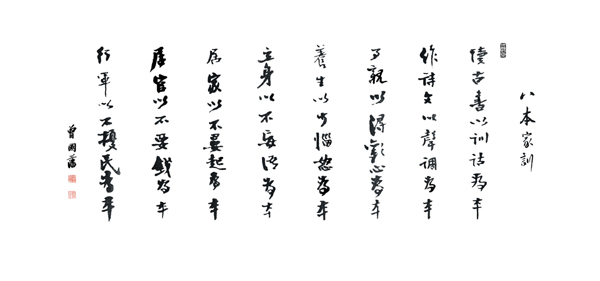 八本家訓
讀古書以訓詁為本
作詩文以聲調為本
事親以得歡心為本
養生以少惱怒為本
立身以不妄語為本
居家以不晏起為本
居官以不要錢為本
行軍以不擾民為本
曾國藩